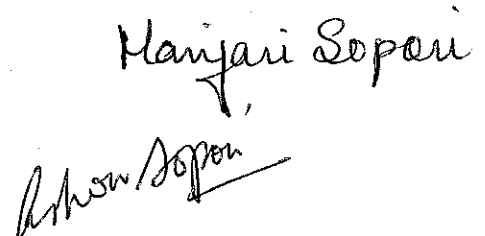 Manjari Sopori
Ashok Sopori